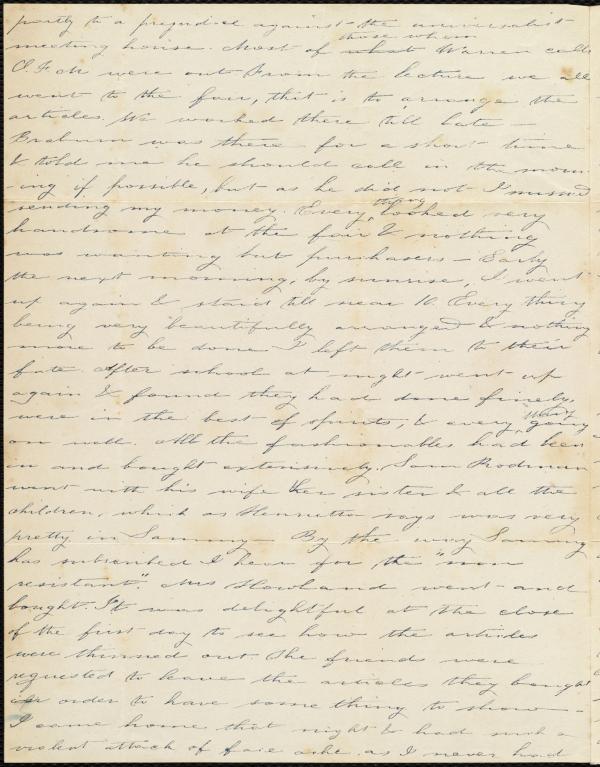 partly to a prejudice against the universalist
those whom
meeting house. Most of what Warren calls
O. F. Ok were out From the lecture we all
went to the fair, that is to arrange the
articles. We worked there till late —
Brabum was there for a short time
& told me he should call in the morn
-ing if possible, but as he did not I missed
sending my money. Every thing looked very
handsome at the fair & nothing
was wanting but purchasers — Early
the next morning, by sunrise, I went
up again & staid till near 10. Every thing
being very beautifully arranged & nothing
more to be done I left them to their
fate After school at night went up
again & found they had done finely,
were in the best of spirits, & every thing going
on well. All the fashionables had been
in and bought extensively. Sam Rodman
went with his wife & her sister & all the
children, which as Henrietta says was very
pretty in Sammy — By the way Sammy
has subscribed I hear for the "non
resistant". Mrs Howland went and
bought. It was delightful at the close
of the first day to see how the articles
were thinned out The friends were
requested to leave the articles they bought
in order to have some thing to show —
I came home that night & had such a
violent attack of face ache as I never had